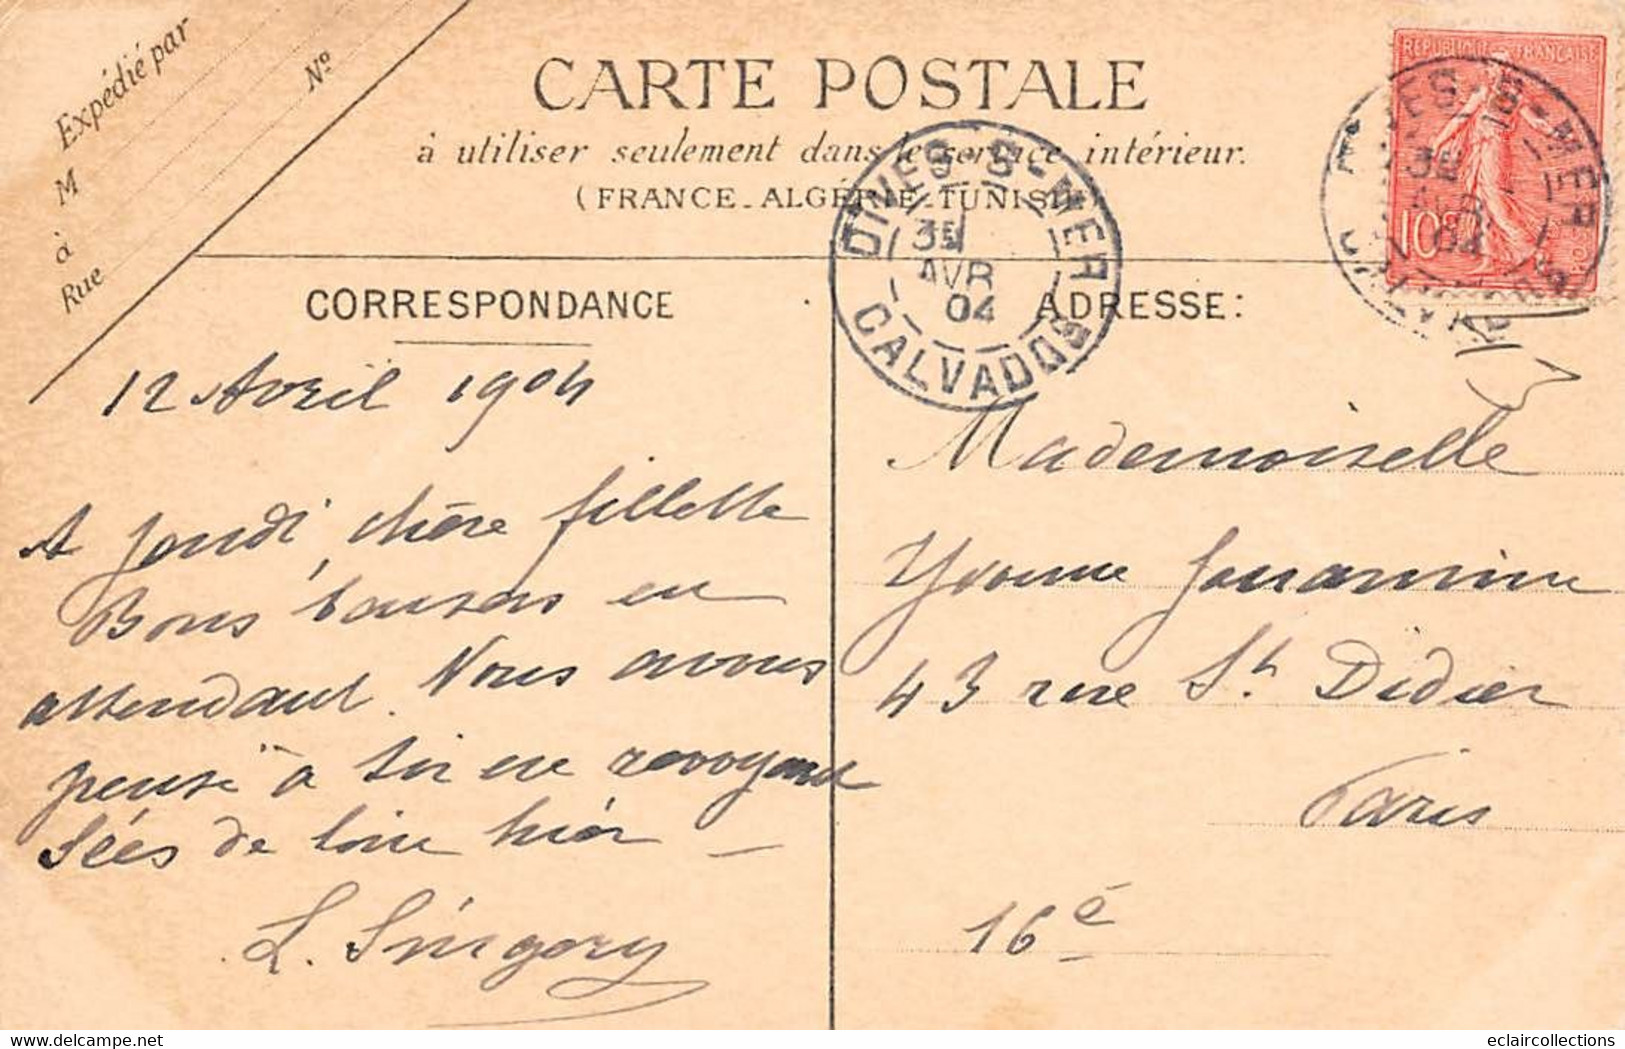 Expédié par
M
à
Rue
N°
CARTE POSTALE
à utiliser seulement dans le service intérieur.
(FRANCE-ALGÉRIE-TUNISIE)
RÉPUBLIQUE FRANÇAISE
10c
DIVES-S-MER
3E
AVR
04
CALVADOS
DIVES-S-MER
3E
AVR
04
CALVADOS
CORRESPONDANCE
ADRESSE:
12 Avril 1904
A jeudi, chère fillette
Bons baisers en
attendant. Nous avons
pensé à toi en revoyant
Sées de loin hier —
L.
Mademoiselle
Yvonne
43 rue St. Didier
Paris
16e
eclaircollections